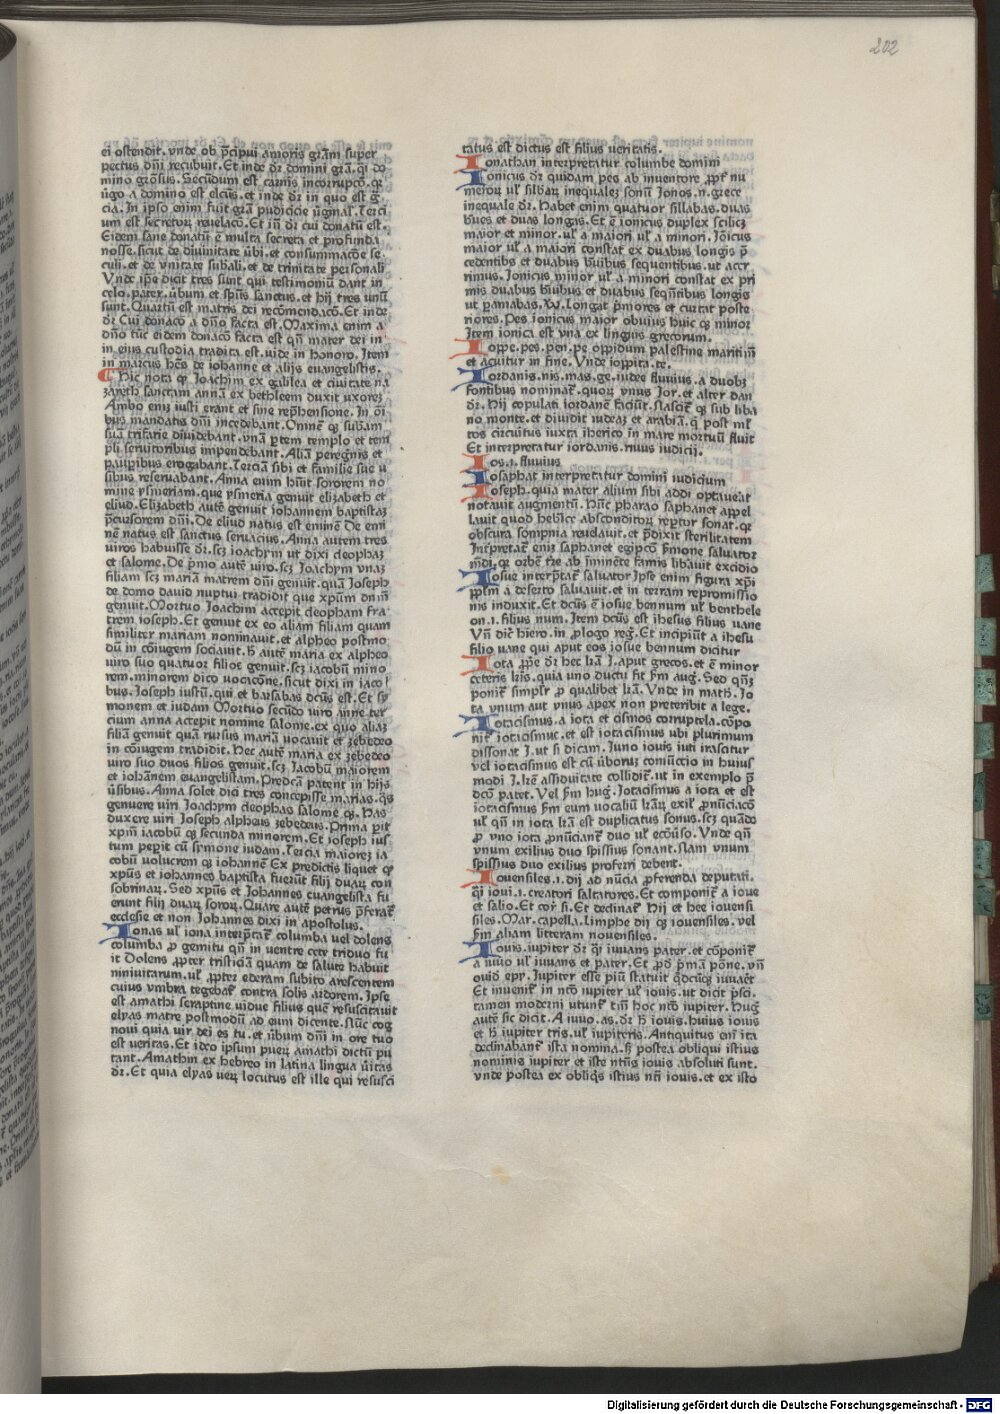 202
ei ostendit. vnde ob p̄cipui amoris gr̄am super
pectus dn̄i recubuit. Et inde dr̄ domini grā. qi do
mino grōsus. Secūdum est carnis incorrupcō. qꝛ
ūgo a domino est elcūs. et inde dr̄ in quo est ḡ
cia. In ipso enim fuit grā pudicicie ūginal. Terci
um est secretoꝝ reuelacō. Et iñ dr̄ cui donatū est.
Eidem sane donatū ē multa secreta et profunda
nosse. sicut de diuinitate ūbi. et consummacōe se⸗
culi. et de vnitate subāli. et de trinitate personali
Vnde ip̄e dicit tres sunt qui testimoniū dant in
celo. pater. ūbum et sp̄us sanctus. et hij tres unū
sunt. Quartū est matris dei recōmendacō. Et inde
dr̄ Cui donacō a dn̄o facta est. Maxima enim a
dn̄o tūc eidem donacō facta est qn̄ mater dei in
in eius custodia tradita est. uide in honoro. Item
in marcus hēs de iohanne et alijs euangelistis.
Hic nota ꝙ Joachim ex galilea et ciuitate na
zareth sanctam annā ex bethleem duxit uxoreꝫ
Ambo enim iusti erant et sine rep̄hensione. In oī
bus mandatis dn̄i incedebant. Omnē ꝙ subam
suā trifarie diuidebant. vnā ꝑtem templo et tem
pli seruitoribus impendebant. Aliā peregnis et
pauꝑibus erogabant. Terciā sibi et familie sue u
sibus reseruabant. Anna enim hūit sororem no
mine ysmeriam. que ysmeria genuit elizabeth et
eliud. Elizabeth autē genuit iohannem baptistaꝫ
p̄cursorem dn̄i. De eliud natus est eminē De emi
nē natus est sanctus seruacius. Anna autem tres
uiros habuisse dr̄. scꝫ ioachym ut dixi cleophaꝫ
et salome. De p̄mo autē uiro. scꝫ Joachym vnaꝫ
filiam scꝫ mariā matrem dn̄i genuit. quā Joseph
de domo dauid nuptui tradidit que xp̄um dn̄m
genuit. Mortuo Joachim accepit cleopham fra⸗
trem ioseph. Et genuit ex eo aliam filiam quam
similiter mariam nominauit. et alpheo postmo
dū in cōiugem sociauit. H̄ autē maria ex alpheo
uiro suo quatuor filios genuit. scꝫ iacobū mino
rem. minorem dico uocacōne. sicut dixi in iaco⸗
bus. Joseph iustū. qui et barsabas dcūs est. Et sy
monem et iudam Mortuo secūdo uiro anne ter
cium anna accepit nomine salome. ex quo aliaꝫ
filiā genuit quā rursus mariā uocauit et zebedeo
in cōiugem tradidit. Hec autē maria ex zebedeo
uiro suo duos filios genuit. scꝫ Jacobū maiorem
et iohānem euangelistam. Predcā patent in hijs
ūsibus. Anna solet dici tres concepisse marias. q̄s
genuere uiri Joachym cleophas salome ꝙ. Has
duxere uiri Joseph alpheus zebedeus. Prima ꝑit
xp̄m iacobū ꝙ secunda minorem. Et ioseph ius⸗
tum peꝑit cū symone iudam. Tercia maioreꝫ ia
cobū uolucrem ꝙ iohannē Ex predictis liquet ꝙ
xp̄us et iohannes baptista fuerūt filij duaꝝ con
sobrinaꝝ. Sed xp̄us et Johannes euangelista fu
erunt filij duaꝝ soroꝝ. Quare autē petrus p̄feraꝉ
ecclesie et non Johannes dixi in apostolus.
Jonas uł iona interp̄tat̄ columba uel dolens
columba ꝓ gemitu qn̄ in uentre cete triduo fu
it Dolens ꝓpter tristiciā quam de salute habuit
niniuitarum. uł ꝓpter ederam subito arescentem
cuius vmbra tegebat̄ contra solis ardorem. Ipse
est amathi scraptine uidue filius quē resuscitauit
elyas matre postmodū ad eum dicente. Nūc cog
noui quia uir dei es tu. et ūbum dn̄i in ore tuo
est ueritas. Et ideo ipsum pueꝝ amathi dictū pu
tant. Amathin ex hebreo in latina lingua ūitas
dr̄. Et quia elyas ueꝝ locutus est ille qui resusci
tatus est dictus est filius ueritatis.
Jonathan interpretatur columbe domini
Jonicus dr̄ quidam pes ab inuentore ꝓpt̄ nu
meroꝝ uł silbaꝝ inequales sonū Jonos. n. grece
inequale dr̄. Habet enim quatuor sillabas. duas
b̄ues et duas longas. Et ē ionicus duplex scilicꝫ
maior et minor. uł a maiori uł a minori. Jōicus
maior uł a maiori constat ex duabus longis p̄
cedentibs et duabus b̄uibus sequentibus. ut acer
rimus. Jonicus minor uł a minori constat ex pri
mis duabus b̄uibus et duabus seqn̄tibus longis
ut ꝑamabas. Xv. Longat p̄mores et curtat poste
riores. Pes ionicus maior obuius huic ꝙ minor
Item ionica est vna ex linguis grecorum.
Joppe. pes. pen. pe oppidum palestine maritimū
et acuitur in fine. Vnde ioppita. te.
Jordanis. nis. mas. ge. iudee fluuius. a duobꝫ
fontibus nominat̄. quoꝝ vnus Jor. et alter dan
dr̄. Hij copulati iordanē faciūt. Nascit̄ ꝙ sub liba
no monte. et diuidit iudeaꝫ et arabiā. q̄ post ml̄
tos circuitus iuxta iherico in mare mortuū fluit
Et interpretatur iordanis. riuus iudicij.
Jos. i. fluuius
Josaphat interpretatur domini iudicium
Joseph. quia mater alium sibi addi optauerat
notauit augmentū. Hūc pharao saphanet appel
lauit quod hebice absconditoꝝ reꝑtor sonat. qꝛ
obscura sompnia reuelauit. et p̄dixit sterilitatem
Intr̄pretat̄ eniꝫ saphanet egipcō sermone saluator
mūdi. qꝛ orbē tr̄e ab iminēte famis libauit excidio
Josue interp̄tat̄ saluator Ipse enim figura xp̄i
pp̄lm a deserto saluauit. et in terram repromissio
nis induxit. Et dcūs ē iosue bennum uł benthele
on. i. filius num. Item dcūs est ihesus filius naue
Vn̄ dic̄ hiero. in ꝓlogo reg̃. Et incipiūt a ihesu
filio naue qui aput eos iosue bennum dicitur
Jota ꝓpe dr̄ hec lr̄a J. aput grecos. et ē minor
ceteris lr̄is. quia uno ductu fit sm̄ aug̃. Sed qn̄ꝫ
ponit̄ simpłr ꝓ qualibet lr̄a. Vnde in math̄. Jo
ta vnum aut vnus apex non preteribit a lege.
Jotacismus. a iota et cismos corruptela. cōpo
nit̄ iotacismuc. et est iotacismus ubi plurimum
dissonat J. ut si dicam. Juno iouis iuti irasatur
vel iotacismus est cū ūboruꝫ coniūccio in huius
modi J. lr̄e assiduitate collidit̄. ut in exemplo p̄
dcō patet. Vel sm̄ hug̃. Jotacismus a iota et est
iotacismus sm̄ eum uocaliū lr̄aꝝ exil̄ ꝓnūciacō
uł qn̄ in iota lr̄a est duplicatus sonus. scꝫ quādo
ꝓ vno iota ꝓnūciant̄ duo uł ecōuso. Vnde qn̄
vnum exilius duo spissius sonant. Nam vnum
spissius duo exilius proferri debent.
Jouensiles. i. dij ad nūcia ꝓferenda deputati.
q̄i ioui. i. creatori saltatores. Et componit̄ a ioue
et salio. Et cor̄ si. Et declinat̄ Hij et hee iouensi
siles. Mar. capella. Limphe dij ꝙ iouensiles. vel
sm̄ aliam litteram nouensiles.
Jouis. iupiter dr̄ q̄i iuuans pater. et cōponit̄
a iuuo uł iuuans et pater. Et ꝓd p̄mā pōne. vn̄
ouid̄ epp̄. Jupiter esse piū statuit qdcūqꝫ iuuaēt
Et inuenit̄ in ntō iupiter uł iouis. ut dicit p̄sci.
tamen moderni utunt̄ tm̄ hoc ntō iupiter. Hug̃
autē sic dicit. A iuuo. as. dr̄ h̄ iouis. huius iouis
et h̄ iupiter tris. uł iupiteris. Antiquitus enī ita
declinabant̄ ista nomina. sꝫ postea obliqui istius
nominis iupiter et iste ntīs iouis absoluti sunt.
vnde postea ex obliq̄s istius nn̄ iouis. et ex isto
Digitalisierung gefördert durch die Deutsche Forschungsgemeinschaft - DFG